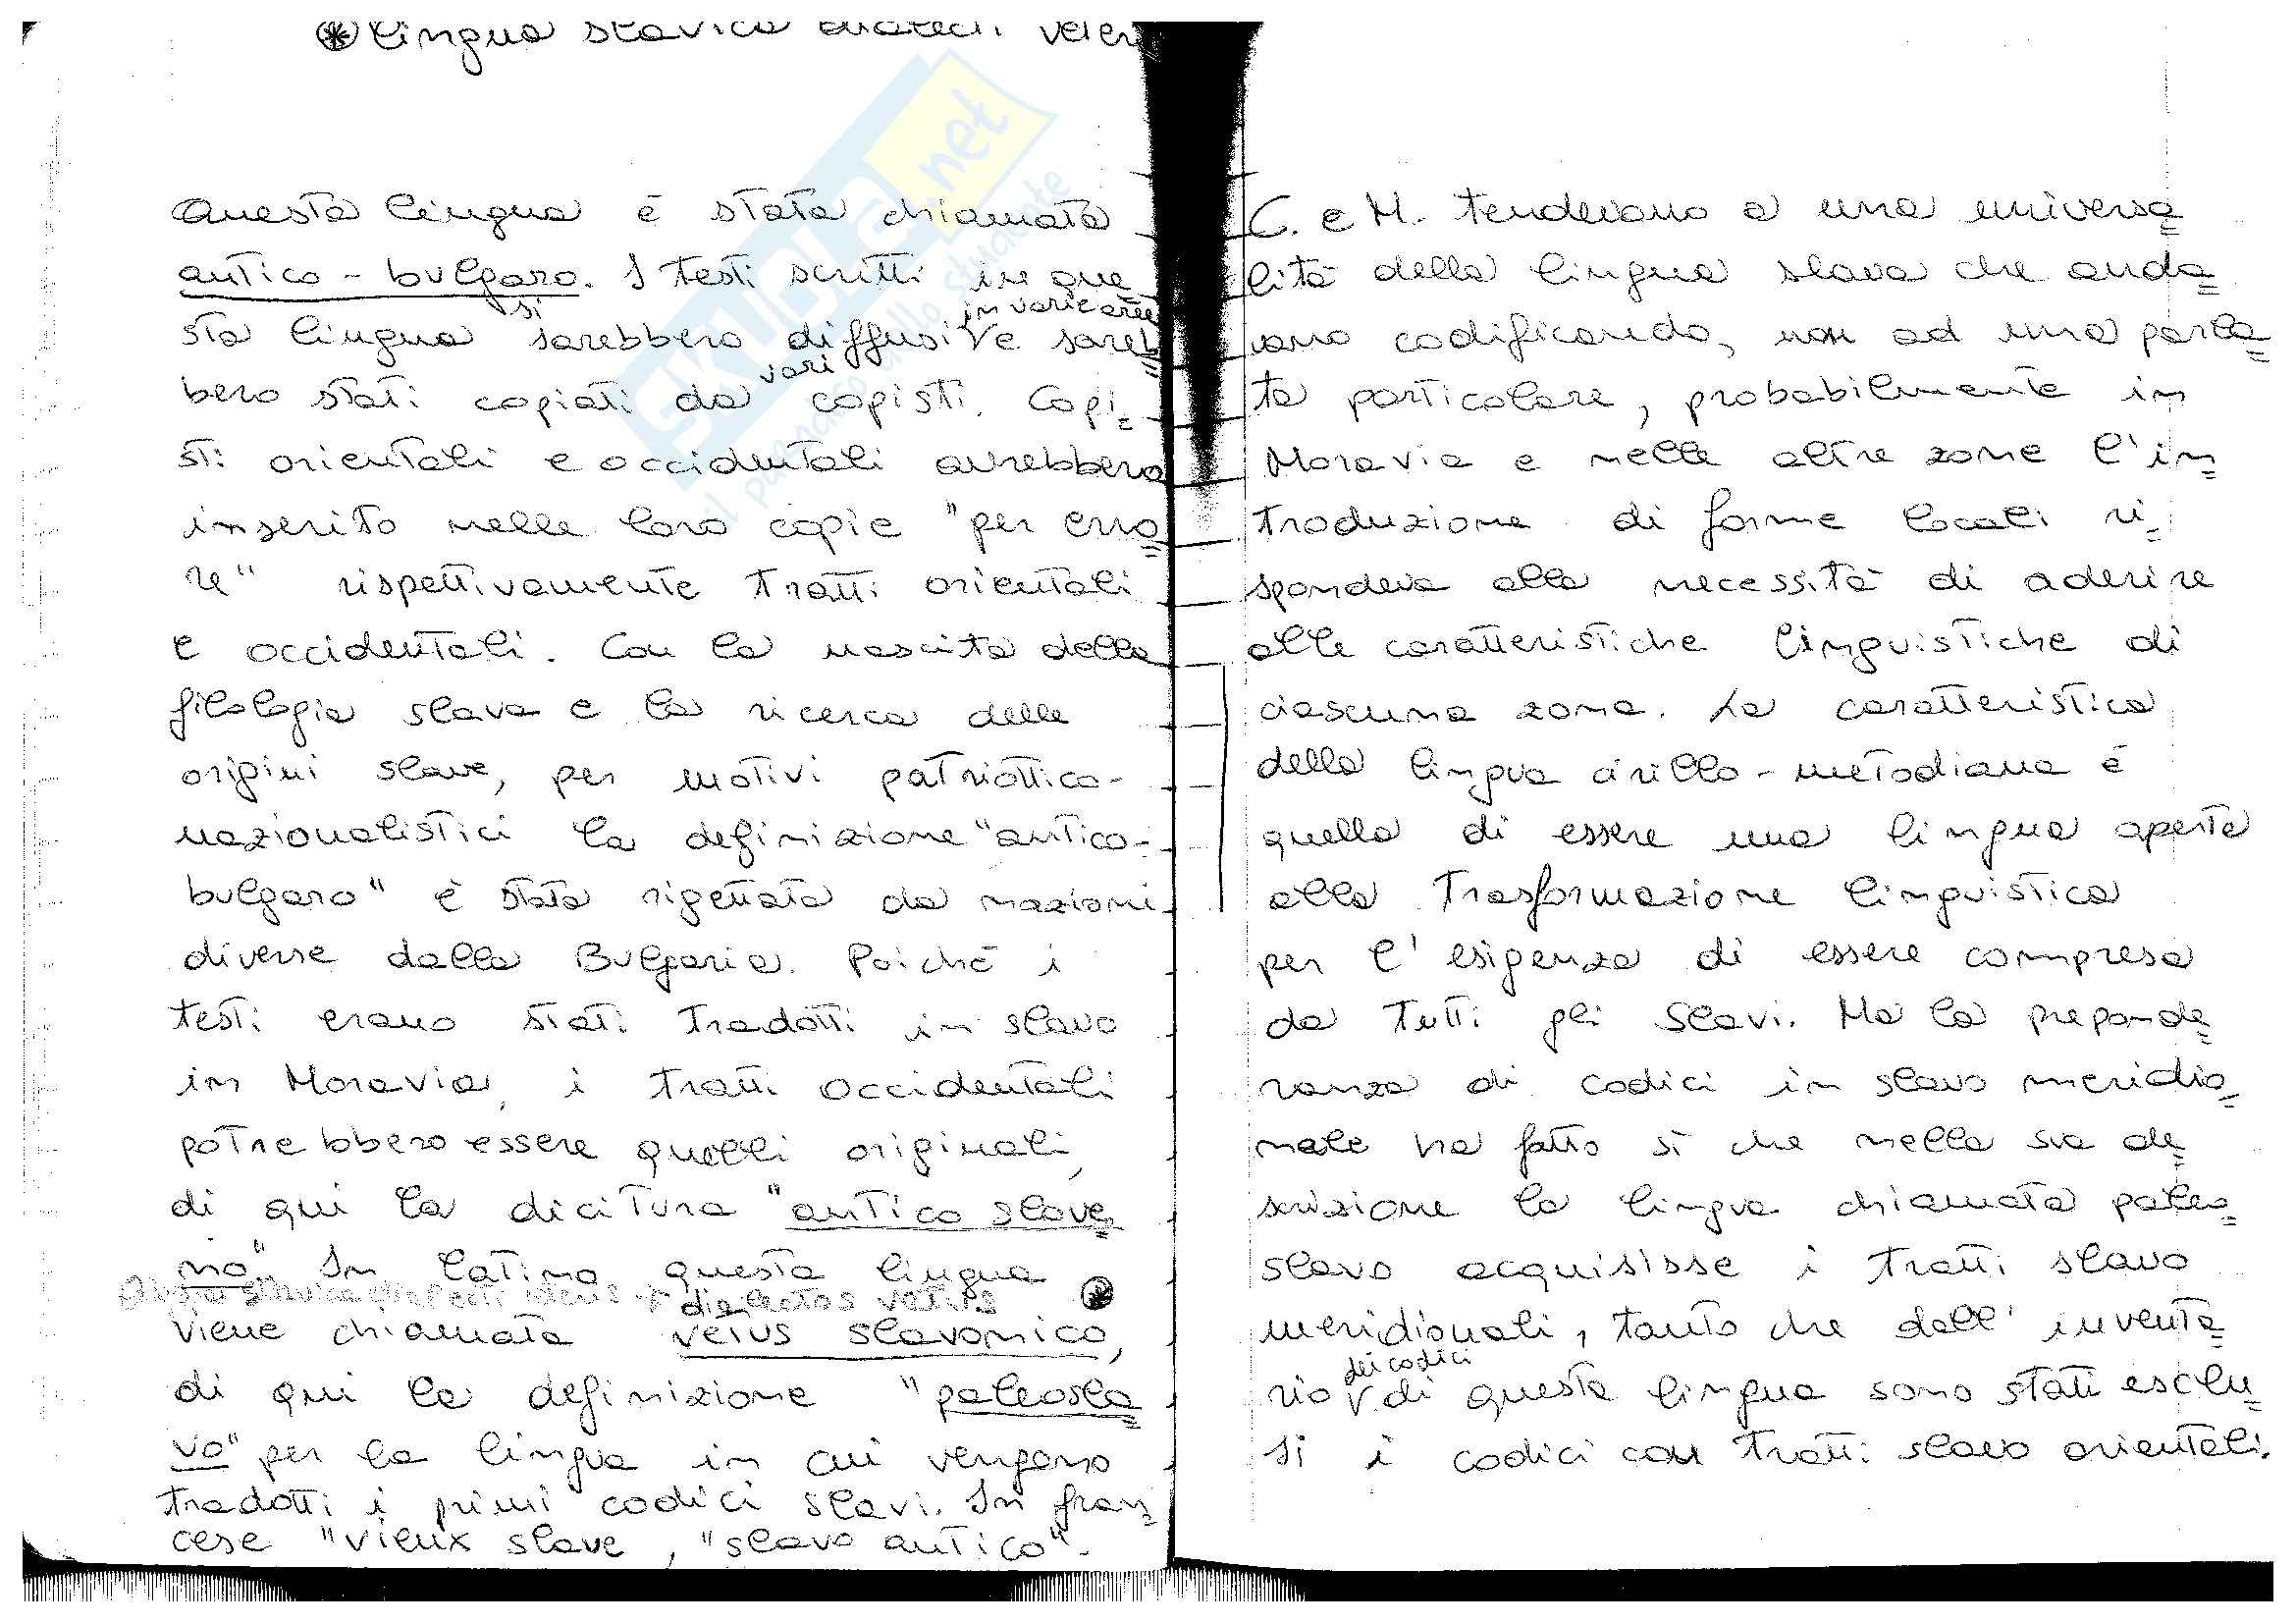 lingua slavica dialecti veter
Questa lingua è stata chiamata
antico-bulgaro. I testi scritti in que=
si in varie aree
sta lingua sarebbero diffusi e sareb=
vari
bero stati copiati da copisti. Copi=
sti orientali e occidentali avrebbero
inserito nelle loro copie "per erro=
re" rispettivamente tratti orientali
e occidentali. Con la nascita della
filologia slava e la ricerca delle
origini slave, per motivi patriottico-
nazionalistici la definizione "antico-
bulgaro" è stata rigettata da nazioni
diverse dalla Bulgaria. Poiché i
testi erano stati tradotti in slavo
in Moravia, i tratti occidentali
potrebbero essere quelli originali,
di qui la dicitura "antico slave=
no". In latino questa lingua
dialectos vetus
viene chiamata vetus slavonico,
di qui la definizione "paleosla=
vo" per la lingua in cui vengono
tradotti i primi codici slavi. In fran=
cese "vieux slave, "slavo antico".
C. e M. tendevano a una universa=
lità della lingua slava che anda=
vano codificando, non ad una parla=
ta particolare, probabilmente in
Moravia e nelle altre zone l'in=
troduzione di forme locali ri=
spondeva alla necessità di aderire
alle caratteristiche linguistiche di
ciascuna zona. La caratteristica
della lingua cirillo-metodiana è
quella di essere una lingua aperta
alla trasformazione linguistica
per l'esigenza di essere compresa
da tutti gli Slavi. Ma la preponde=
ranza di codici in slavo meridio=
nale ha fatto sì che nella sua de=
scrizione la lingua chiamata paleo=
slavo acquisisse i tratti slavo
meridionali, tanto che dall'inventa=
dei codici
rio di questa lingua sono stati esclu=
si i codici con tratti slavo orientali.